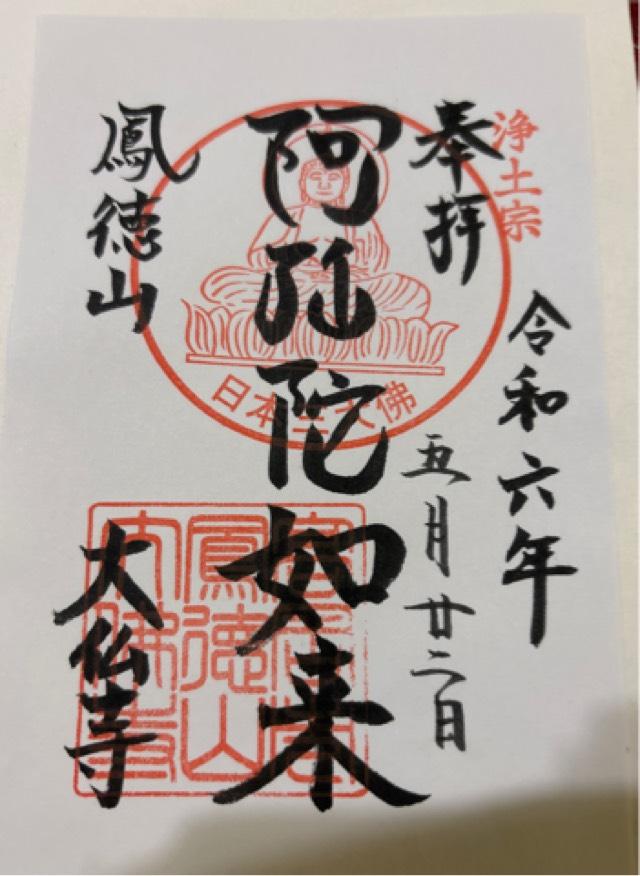 浄土宗
奉拝
令和六年
五月廿二日
阿弥陀如来
日本三大佛
鳳徳山
大仏寺
鳳徳山
大佛寺